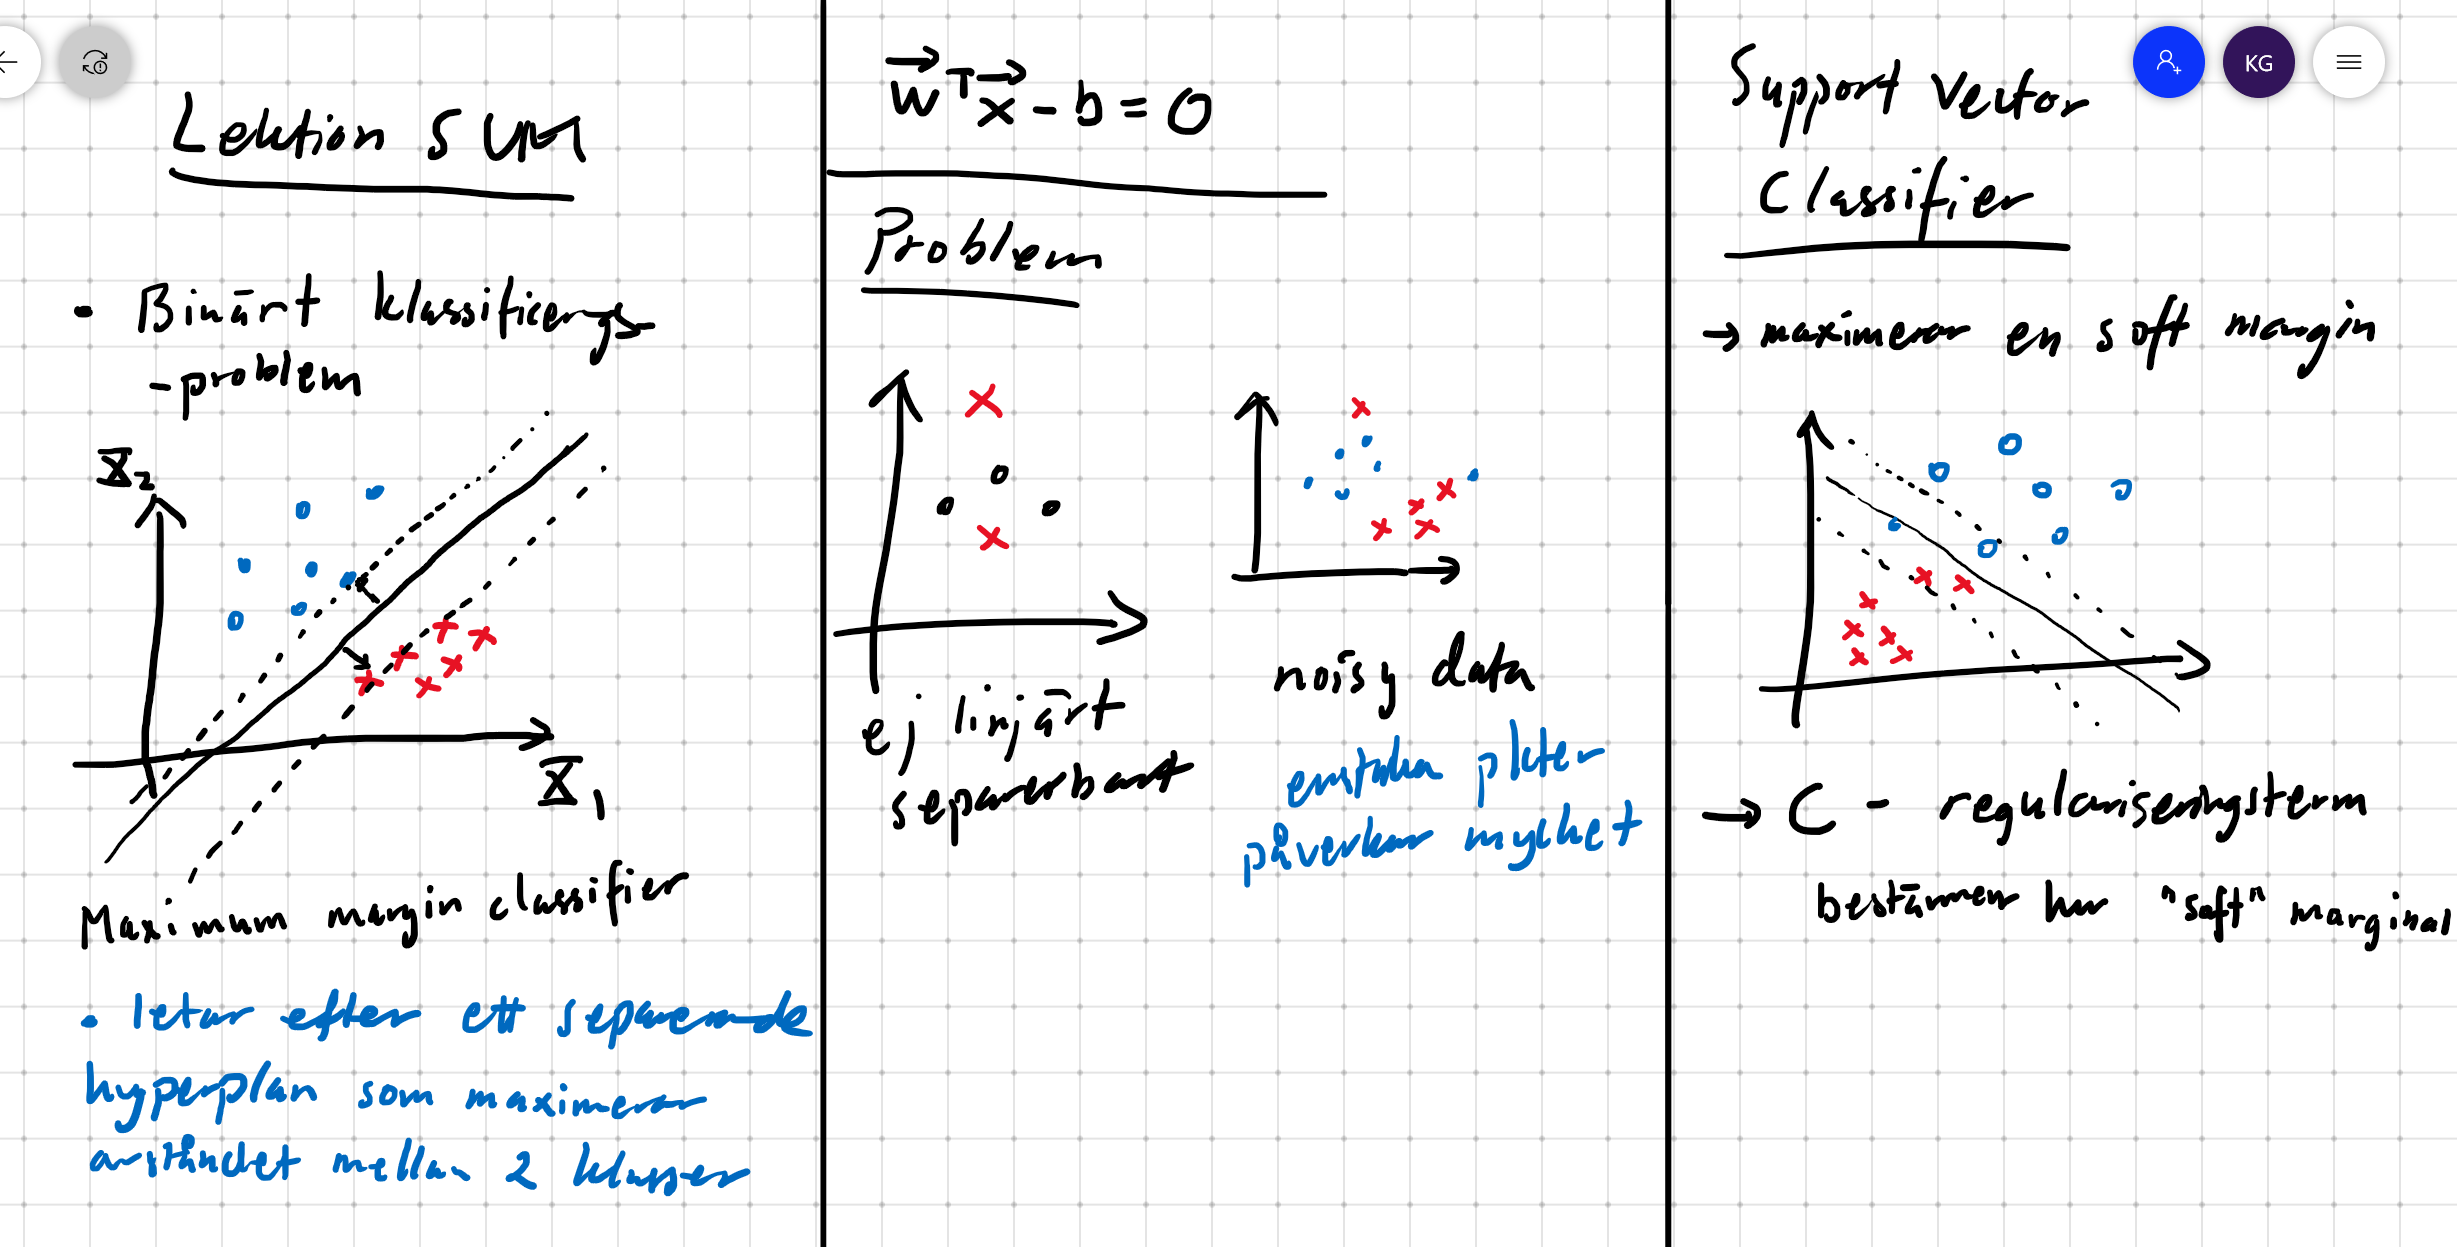 Lektion SVM
• Binärt klassificerings
-problem
X2
X1
Maximum margin classifier
• letar efter ett separerande
hyperplan som maximerar
avståndet mellan 2 klasser
w^T x - b = 0
Problem
ej linjärt
separerbart
noisy data
enstaka pkter
påverkar mycket
KG
Support Vector
Classifier
→ maximerar en soft margin
→ C - regulariseringsterm
bestämmer hur "soft" marginal